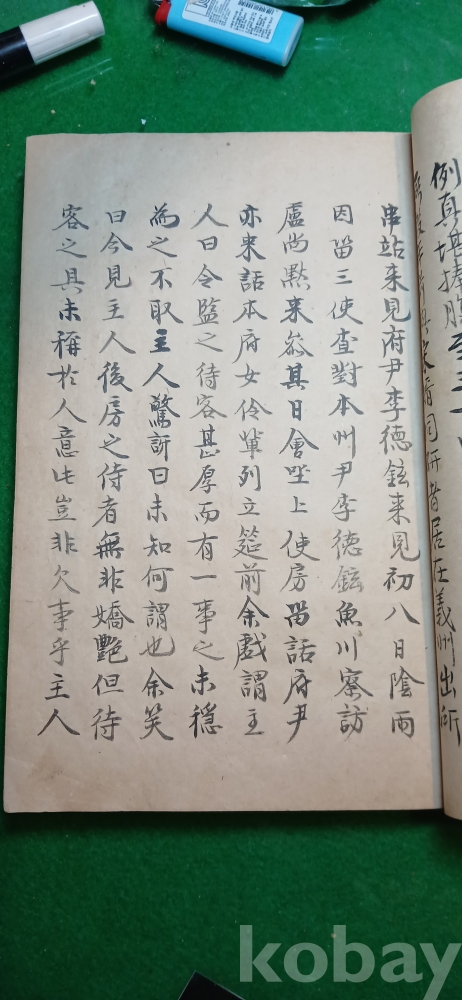 例真堪捧腹至三
居在義州出所
串站来見府尹李德鉉来見初八日陰雨
因留三使査對本州尹李德鉉魚川察訪
盧尚黙来参其日會坐上使房留話府尹
亦来話本府女伶輩列立筵前余戲謂主
人曰令監之待客甚厚而有一事之未穏
為之不取主人驚訝曰未知何謂也余笑
曰今見主人後房之侍者無非嬌艶但待
客之具未稱於人意此豈非欠事乎主人
kobay